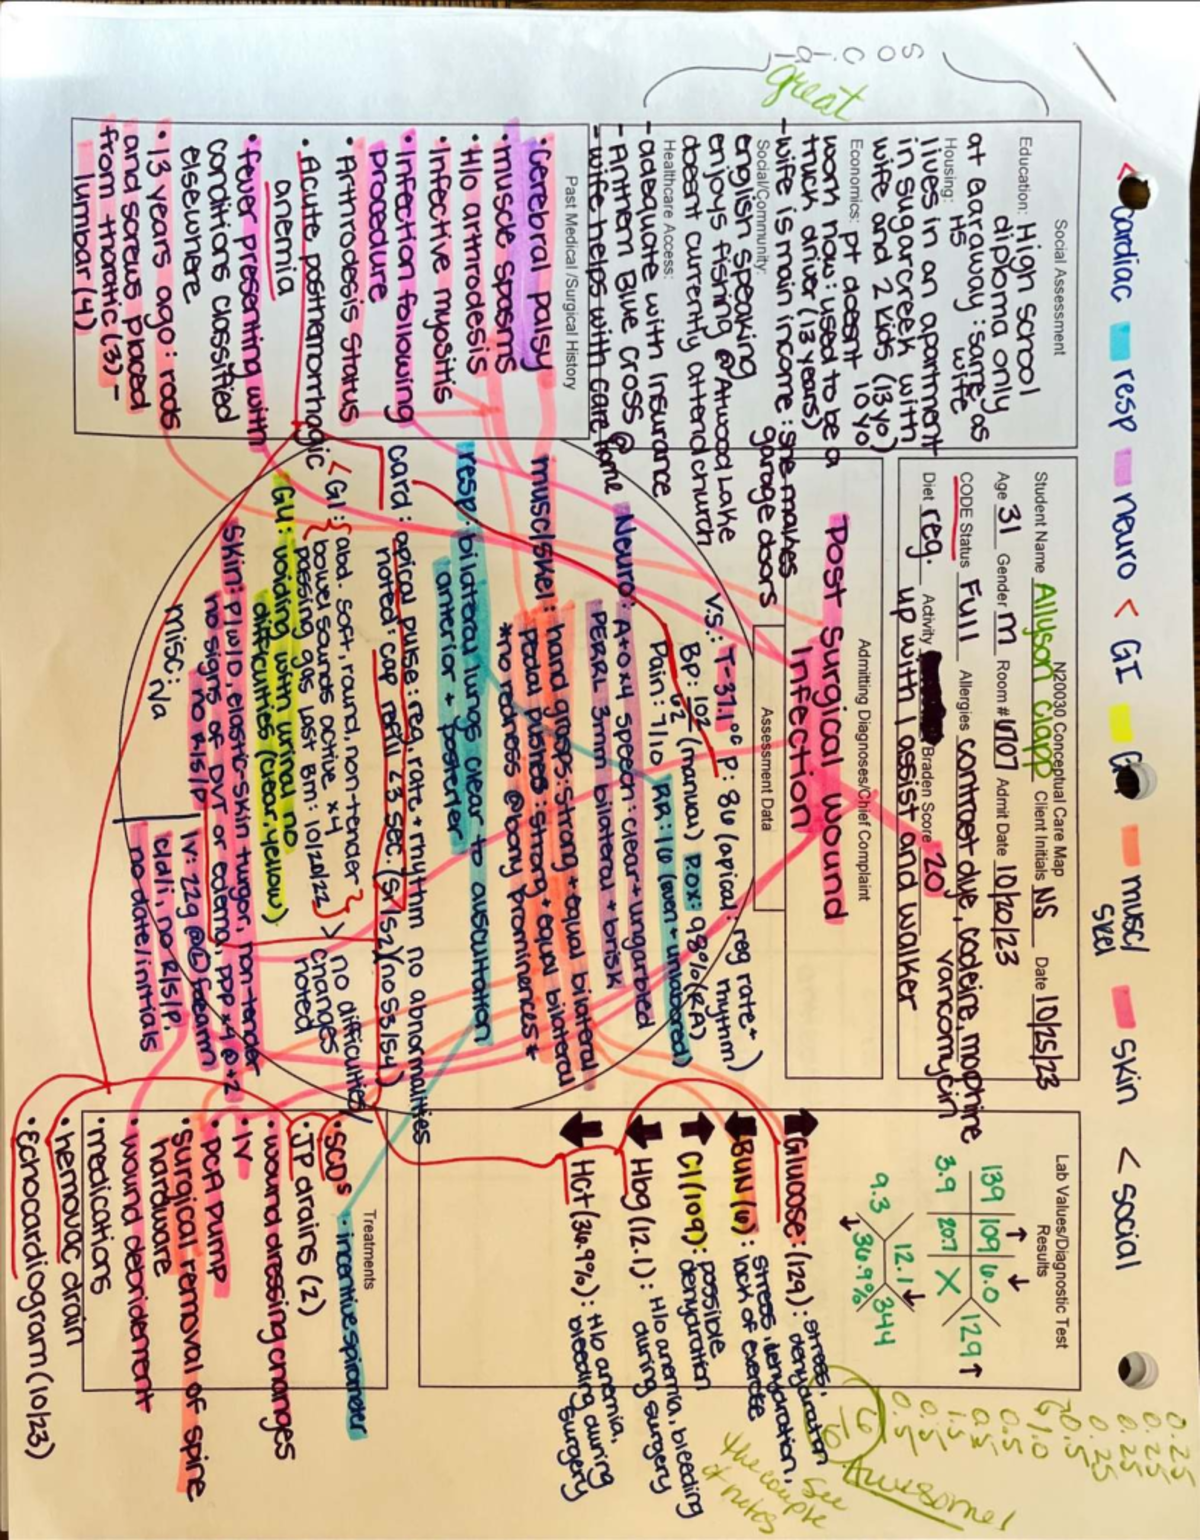 < cardiac resp neuro < GI muscl skel skin < social
N20030 Conceptual Care Map
Student Name Allyson Clapp Client Initials NS Date 10/25/23
Age 31 Gender m Room # Admit Date 10/20/23
CODE Status Full Allergies contrast dye, codeine, morphine
vancomycin
Diet reg. Activity Braden Score 20
up with 1 assist and walker
Social Assessment
Education: High school
diploma only
at Garaway : same as
wife
HS
Housing:
lives in an apartment
in sugarcreek with
wife and 2 kids (13yo)
10 yo
Economics: pt doesnt
work now: used to be a
truck driver (13 years)
-wife is main income : she makes
garage doors
Social/Community:
english speaking
enjoys fishing @Atwood Lake
doesnt currently attend church
Healthcare Access:
- adequate with insurance
- Anthem Blue Cross
- wife helps with care @ home
social
great
Past Medical /Surgical History
• cerebral palsy
• muscle spasms
• H/o arthrodesis
• infective myositis
• infection following
procedure
• Arthrodesis status
• Acute posthemorrhagic
anemia
• fever presenting with
conditions classified
elsewhere
• 13 years ago: rods
and screws placed
from thoratic (3) -
lumbar (4)
Admitting Diagnoses/Chief Complaint
Post Surgical wound
Infection
Assessment Data
V.S.: T-37.1°C P: 86 (apical: reg rate +
rhythm)
BP: 102/62 (manual) P.OX: 98% (RA)
Pain: 7/10 RR: 16 (even + unlabored)
Neuro: A+Ox4 speech: clear + ungarbled
PERRL 3mm bilateral + brisk
muscl/skel: hand grasps: strong + equal bilateral
pedal pushes: strong + equal bilateral
*no redness @ bony prominences*
resp: bilateral lungs clear to auscultation
anterior + posterier
card: apical pulse: reg. rate + rhythm no abnormalities
noted: cap refill <3 sec. (S1/S2)(no S3/S4)
< GI: abd. soft, round, non-tender
bowel sounds active x4
passing gas last BM: 10/20/22
> no difficulties/
changes
noted
GU: voiding with urinal no
difficulties (clear, yellow)
Skin: P/W/D, elastic-skin turgor, non-tender
no signs of DVT or edema, PPP x4 @ +2
no R/S/P
misc: n/a
IV: 22g @ L forearm
c/d/i, no R/S/P.
no date/initials
Lab Values/Diagnostic Test
Results
139 109↑ 6.0↓ 129↑
3.9 20.7 X
9.3
12.1↓
344
↓36.9%
↑ Glucose: (129): stress,
dehydration
↓ BUN (6): stress, dehydration,
lack of exercise
↑ Cl (109): possible
dehydration
↓ Hbg (12.1): H/o anemia, bleeding
during surgery
↓ Hct (36.9%): H/o anemia,
bleeding during
surgery
Treatments
• SCDs • incentive spirometer
• JP drains (2)
• wound dressing changes
• IV
• PCA pump
• surgical removal of spine
hardware
• wound debridement
• medications
• hemovac drain
• Echocardiogram (10/23)
0.25
0.25
0.25
0.25
0.5
1.0
0.5
0.5
1.5
0.5
0.5
Awesome!
see
the couple
of notes